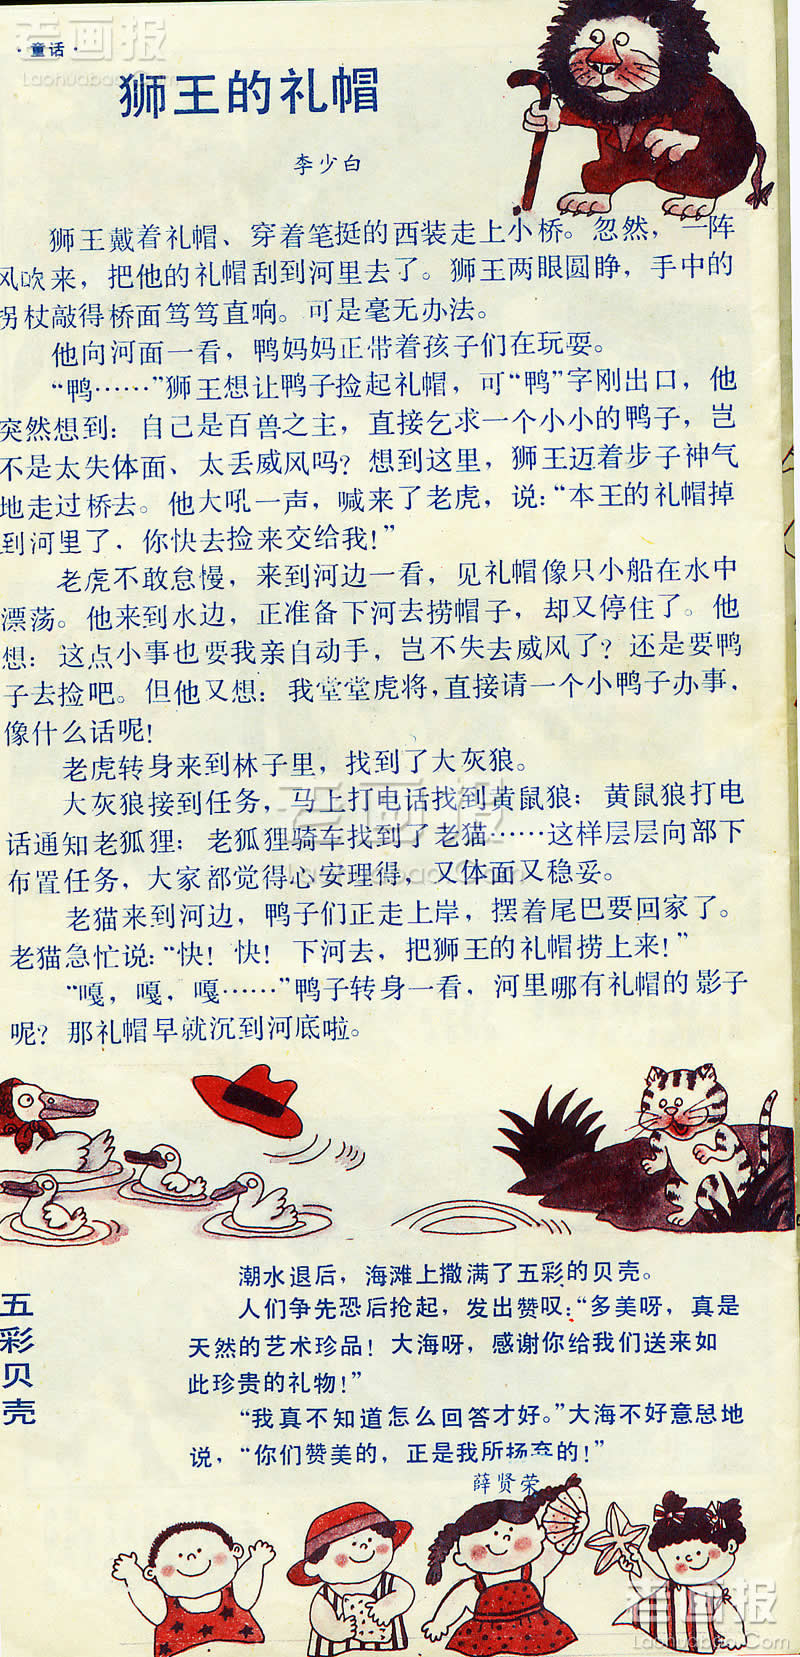 老画报
Laohuabao.Com
·童话·
狮王的礼帽
李少白
狮王戴着礼帽、穿着笔挺的西装走上小桥。忽然，一阵
风吹来，把他的礼帽刮到河里去了。狮王两眼圆睁，手中的
拐杖敲得桥面笃笃直响。可是毫无办法。
他向河面一看，鸭妈妈正带着孩子们在玩耍。
“鸭……”狮王想让鸭子捡起礼帽，可“鸭”字刚出口，他
突然想到：自己是百兽之主，直接乞求一个小小的鸭子，岂
不是太失体面、太丢威风吗？想到这里，狮王迈着步子神气
地走过桥去。他大吼一声，喊来了老虎，说：“本王的礼帽掉
到河里了．你快去捡来交给我！”
老虎不敢怠慢，来到河边一看，见礼帽像只小船在水中
漂荡。他来到水边，正准备下河去捞帽子，却又停住了。他
想：这点小事也要我亲自动手，岂不失去威风了？还是要鸭
子去捡吧。但他又想：我堂堂虎将，直接请一个小鸭子办事，
像什么话呢！
老虎转身来到林子里，找到了大灰狼。
大灰狼接到任务，马上打电话找到黄鼠狼；黄鼠狼打电
话通知老狐狸；老狐狸骑车找到了老猫……这样层层向部下
布置任务，大家都觉得心安理得，又体面又稳妥。
老画报
Laohuabao.Com
老猫来到河边，鸭子们正走上岸，摆着尾巴要回家了。
老猫急忙说：“快！快！下河去，把狮王的礼帽捞上来！”
“嘎，嘎，嘎……”鸭子转身一看，河里哪有礼帽的影子
呢？那礼帽早就沉到河底啦。
五彩贝壳
潮水退后，海滩上撒满了五彩的贝壳。
人们争先恐后抢起，发出赞叹：“多美呀，真是
天然的艺术珍品！大海呀，感谢你给我们送来如
此珍贵的礼物！”
“我真不知道怎么回答才好。”大海不好意思地
说，“你们赞美的，正是我所扬弃的！”
薛贤荣
老画报
Laohuabao.Com